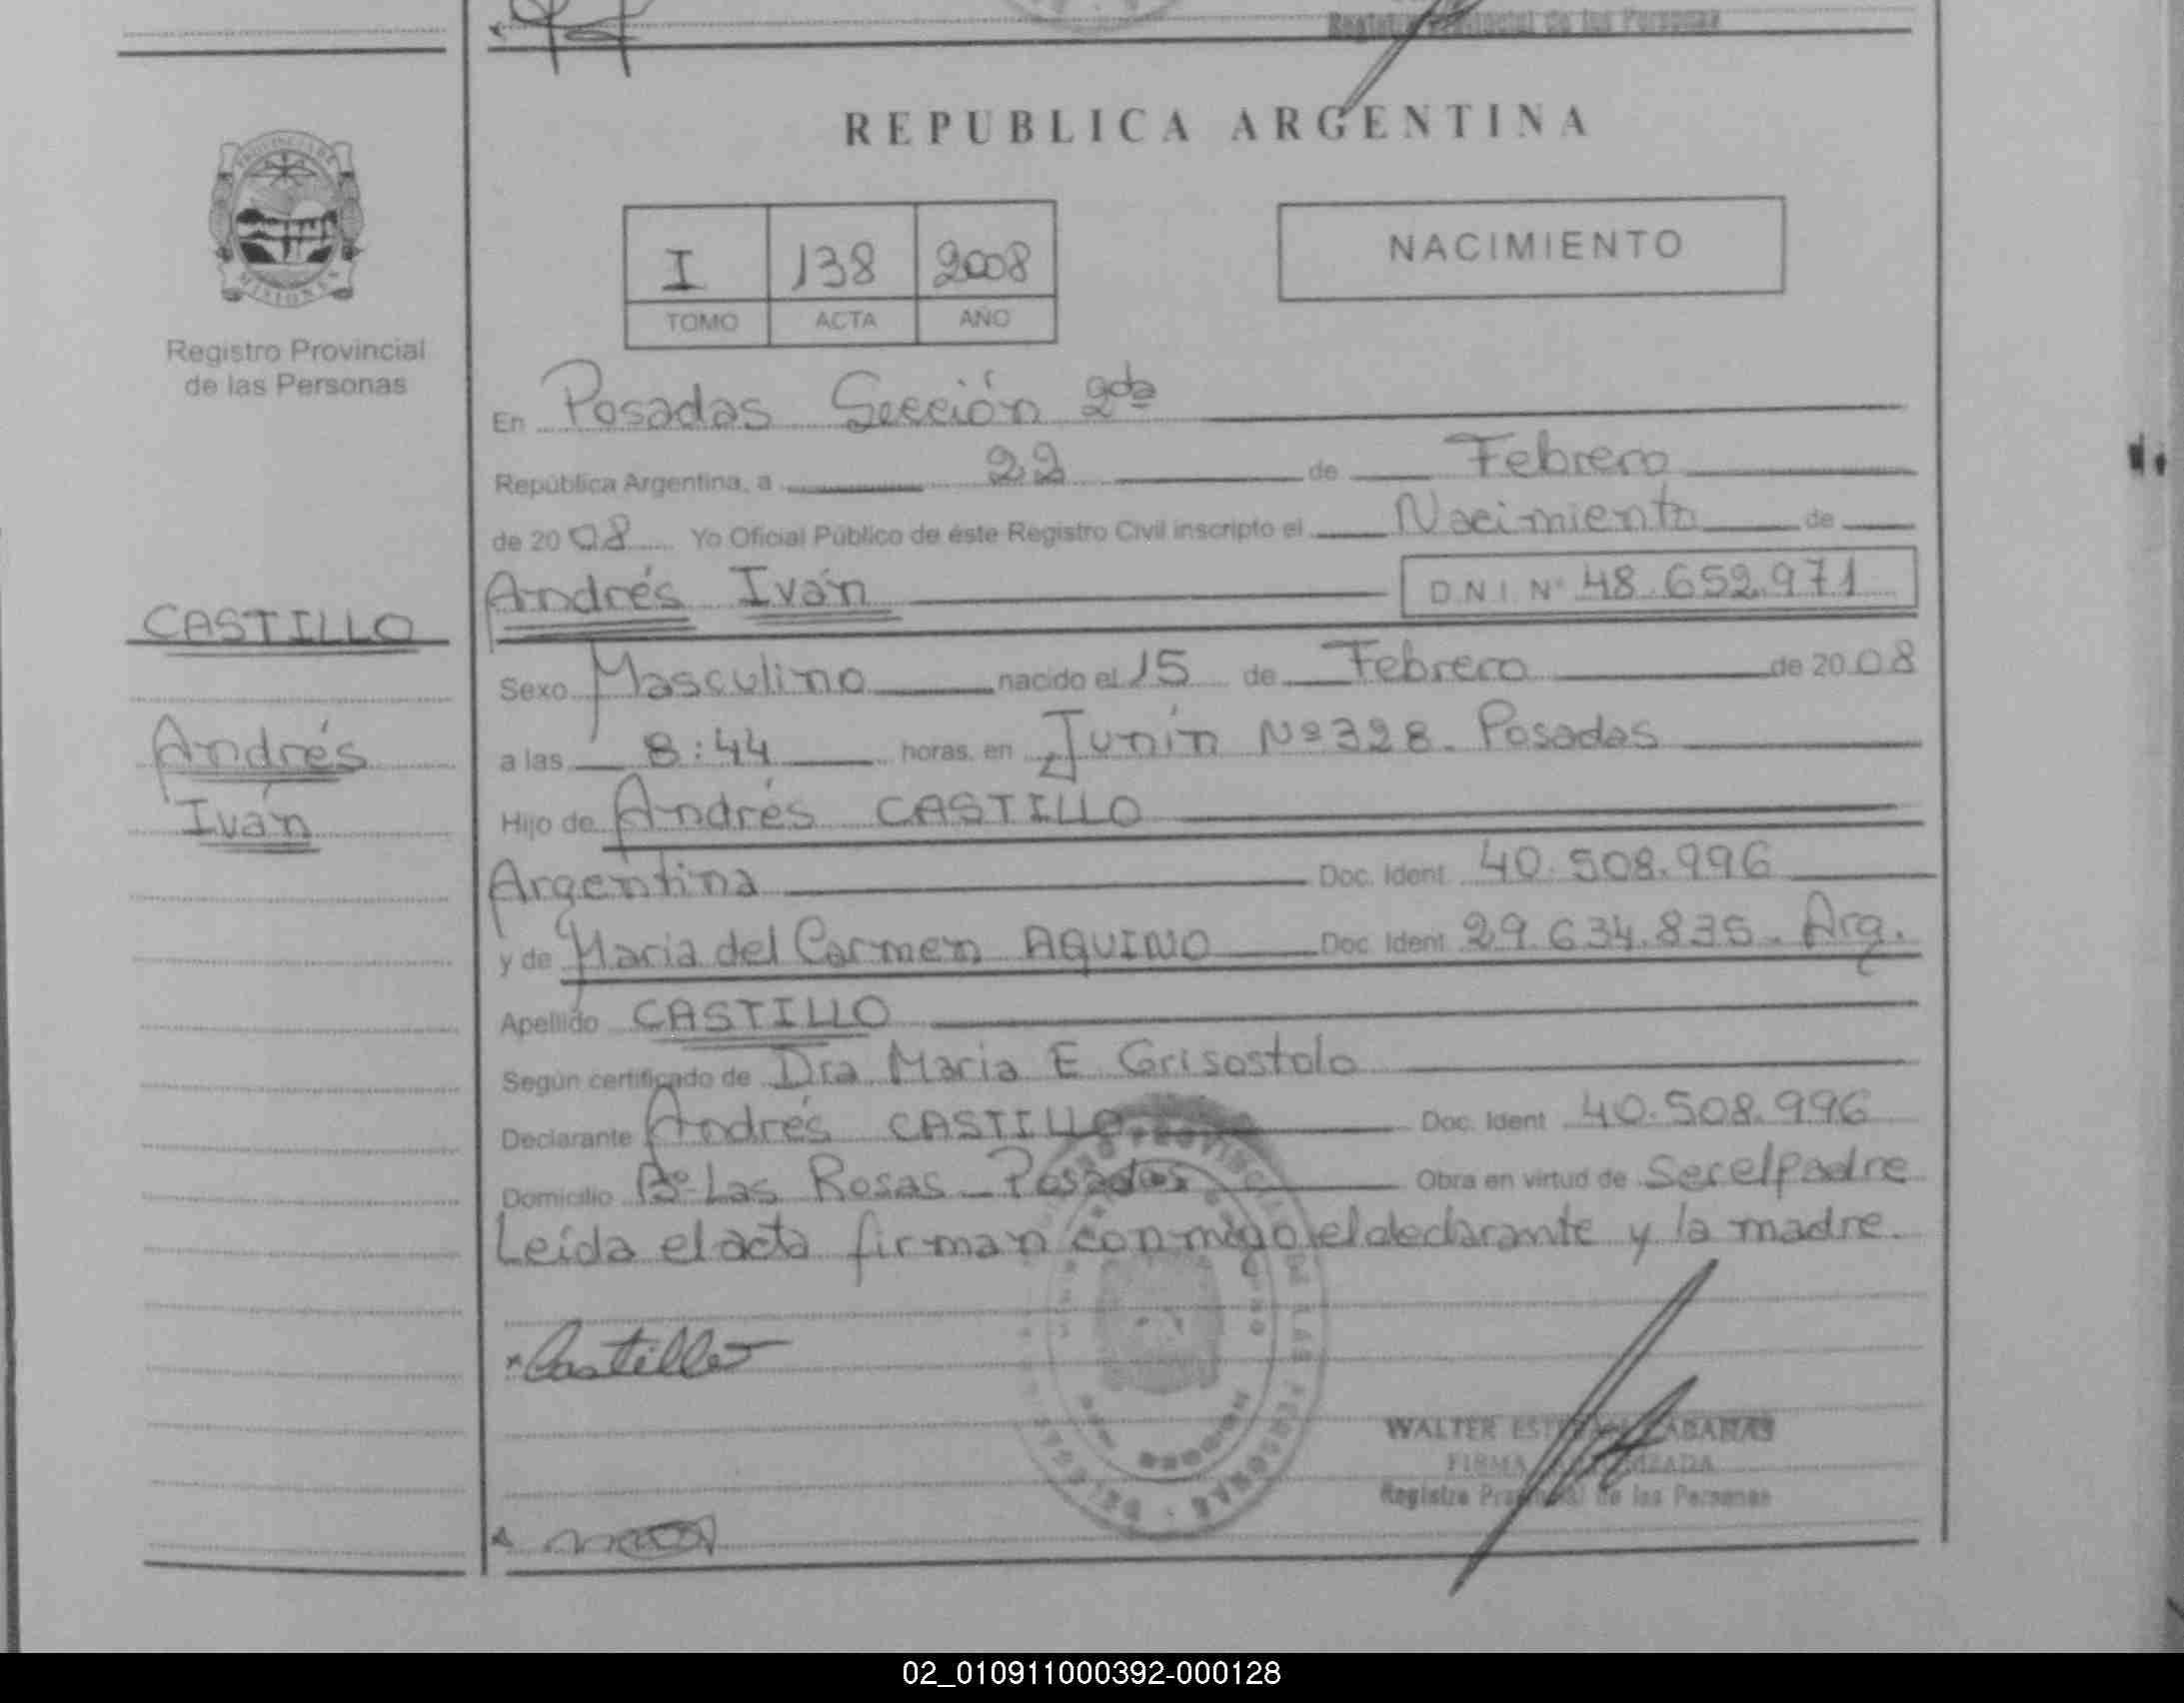 Registro Provincial de las Personas
REPUBLICA ARGENTINA
PROVINCIA DE
MISIONES
Registro Provincial
de las Personas
I 138 2008
TOMO ACTA AÑO
NACIMIENTO
En Posadas Sección 2da
República Argentina, a 22 de Febrero
de 2008 Yo Oficial Público de éste Registro Civil inscripto el Nacimiento de
Andrés Iván D N I Nº 48.652.971
CASTILLO
Andrés
Iván
Sexo Masculino nacido el 15 de Febrero de 2008
a las 8:44 horas, en Junín Nº 328. Posadas
Hijo de Andrés CASTILLO
Argentina Doc. Ident 40.508.996
y de Maria del Carmen AQUINO Doc. Ident 29.634.835. Arg.
Apellido CASTILLO
Según certificado de Dra Maria E Grisostolo
Declarante Andrés CASTILLO Doc. Ident 40.508.996
Domicilio Bº Las Rosas Posadas Obra en virtud de Ser el Padre
Leída el acta firman conmigo el declarante y la madre.
Castillo
WALTER
FIRMA
Registro Provincial de las Personas
02_010911000392-000128